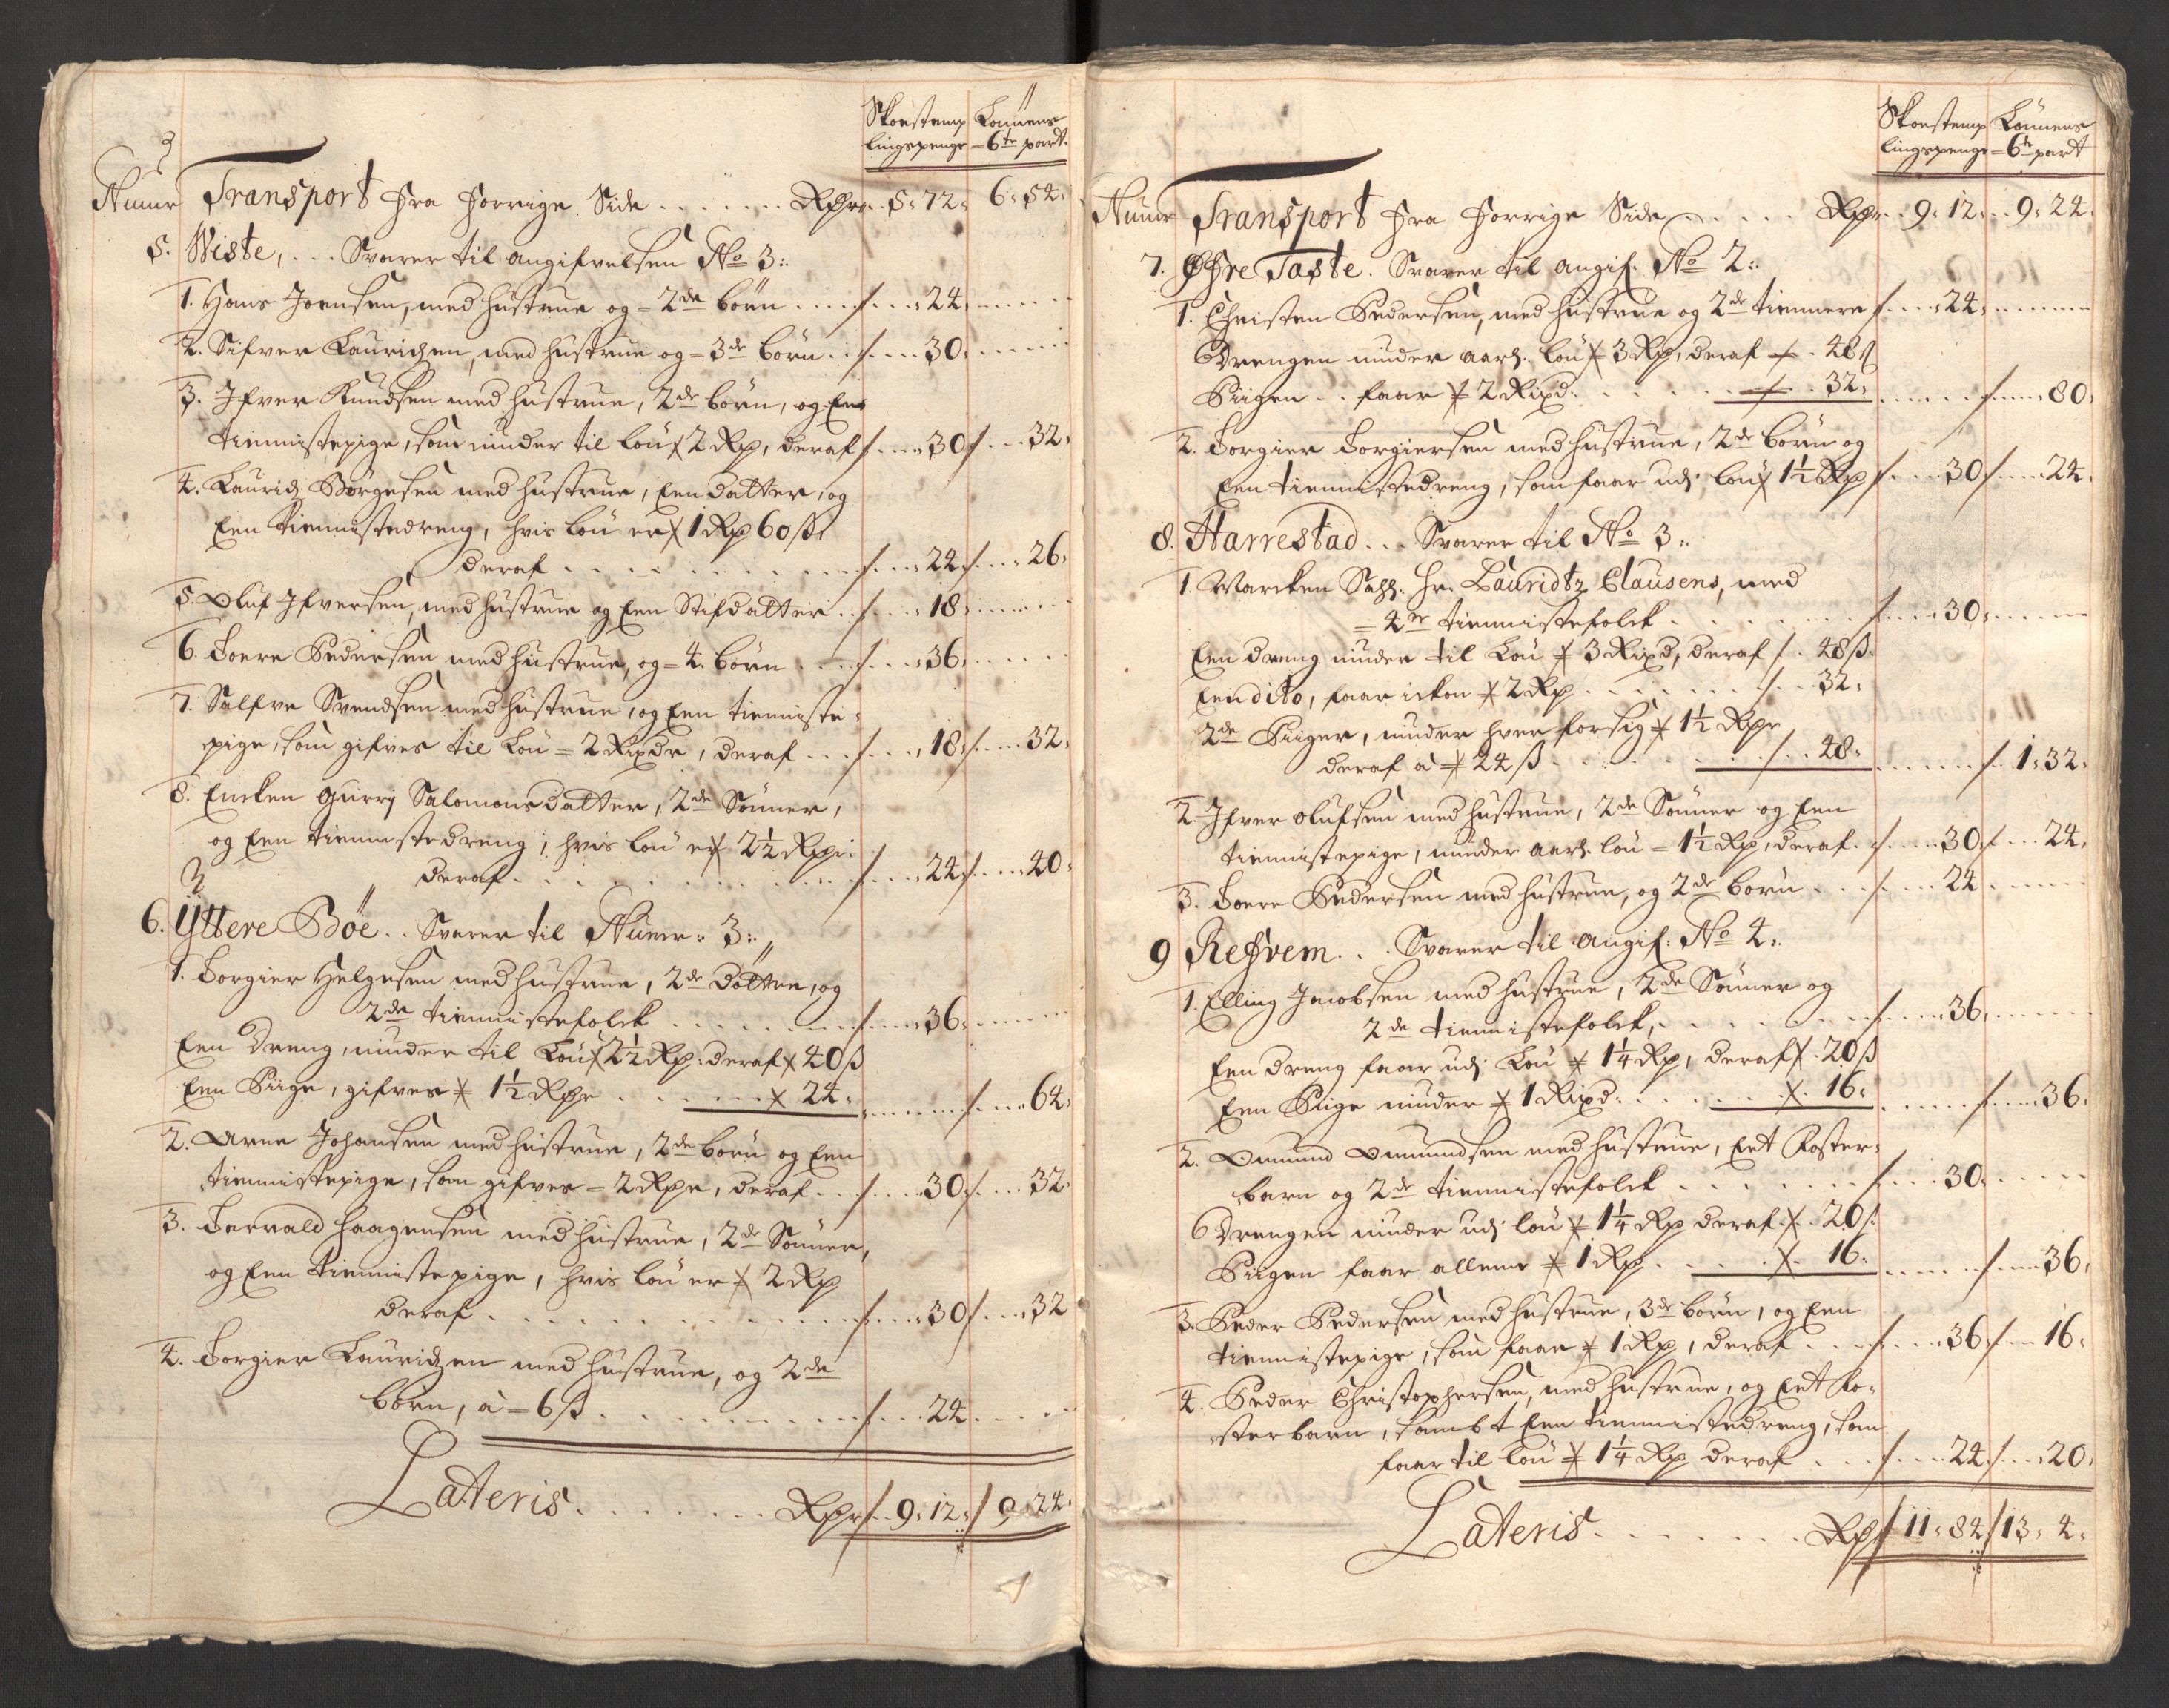 Skoestemp
lingspenge
Lönnens
6te part
Numr Transport fra forrige Side . . . . . . . Rdr . 5: 72: 6: 54:
5. Wiste, . . . Svarer til angifvelsen No 3:
1. Hans Joensen, med hustrue og 2de börn . . . . 24:
2. Sifver Lauridzen, med hustrue og 3de börn . . . . 30:
3. Ifver Knudsen med hustrue, 2de börn, og Een
tiennistepige, som niuder til lön 2 Rd, deraf . . . 30 . . . 32:
4. Lauridz Börgesen med hustrue, Een datter, og
Een tiennistedreng, hvis lön er 1 Rd 60 ß
deraf . . . . . . . . 24 . . . 26:
5. Oluf Ifversen, med hustrue og Een Stifdatter . . . 18:
6. Toere Pedersen med hustrue, og 4. börn . . . . 36:
7. Salfve Svendsen med hustrue, og Een tienniste
pige, som gifves til Lön 2 Rixdr, deraf . . . . 18: . . . 32:
8. Encken Gurrj Salomonsdatter, 2de Sönner,
og Een tiennistedreng, hvis lön er 2½ Rdr
deraf . . . . . . . . 24 . . . 40:
6. Yttere Böe . . Svarer til Numr: 3:
1. Torgier Helgesen med hustrue, 2de döttre, og
2de tiennistefolck . . . . . . . . 36:
Een dreng, niuder til Lön 2½ Rd: deraf 40 ß
Een Piige, gifves 1½ Rdr . . . . . 24: . . . . 64:
2. Arne Johansen med hustrue, 2de börn og Een
tiennistepige, som gifves 2 Rdr, deraf . . . . 30 . . . 32:
3. Torvald Haagensen med hustrue, 2de Sönner,
og Een tiennistepige, hvis lön er 2 Rd
deraf . . . . . . . . . 30 . . . 32
4. Torgier Lauridzen med hustrue, og 2de
börn, à 6 ß . . . . . . . . 24
Lateris . . . . . . . Rdr 9: 12: 9: 24:
Skoestemp
lingspenge
Lönnens
6te part
Numr Transport fra forrige Side . . . . . Rdr . 9: 12: . . 9: 24:
7. Øfre Taste. Svarer til angif: No 2:
1. Christen Pedersen, med hustrue og 2de tiennere . . . 24:
Drengen niuder aarl. lön 3 Rd, deraf . 48 ß
Piigen . . faar 2 Rixd: . . . . . 32: . . . . 80:
2. Torgier Torgiersen med hustrue, 2de börn og
Een tiennistedreng, som faar udj lön 1½ Rd . . . 30 . . . 24:
8. Harrestad . . . Svarer til No 3:
1. Marcken Sahl. Hr. Lauridtz Clausens, med
4re tiennistefolck . . . . . . . . 30:
Een dreng niuder til Lön 3 Rixd, deraf . 48 ß
Een dito, faar ickon 2 Rd . . . . . . . 32:
2de Piiger, niuder hver forsig 1½ Rdr
deraf à 24 ß . . . . . . . . 48: . . . . 1: 32:
2. Ifver Olufsen med hustrue, 2de Sönner og Een
tiennistepige, niuder aarl. lön 1½ Rd, deraf . . . 30 . . . 24:
3. Toere Pedersen med hustrue, og 2de börn . . . . 24
9 Refvem . . . Svarer til angif: No 4:
1. Elling Jacobsen med hustrue, 2de Sönner og
2de tiennistefolck, . . . . . . . . 36:
Een dreng faar udj Lön 1¼ Rd, deraf . 20 ß
Een Piige niuder 1 Rixd: . . . . . . 16: . . . . 36:
2. Omund Omundsen med hustrue, Eet foster
barn og 2de tiennistefolck . . . . . . . . 30:
Drengen niuder udj lön 1¼ Rd deraf . 20 ß
Piigen faar allene 1 Rd . . . . . 16: . . . . 36:
3. Peder Pedersen med hustrue, 3de börn, og Een
tiennistepige, som faar 1 Rd, deraf . . . . 36 . . . 16:
4. Peder Christophersen, med hustrue, og Eet fo
sterbarn, sambt Een tiennistedreng, som
faar til lön 1¼ Rd deraf . . . . 24 . . . 20:
Lateris . . . . . . . Rdr 11: 84 13: 4: